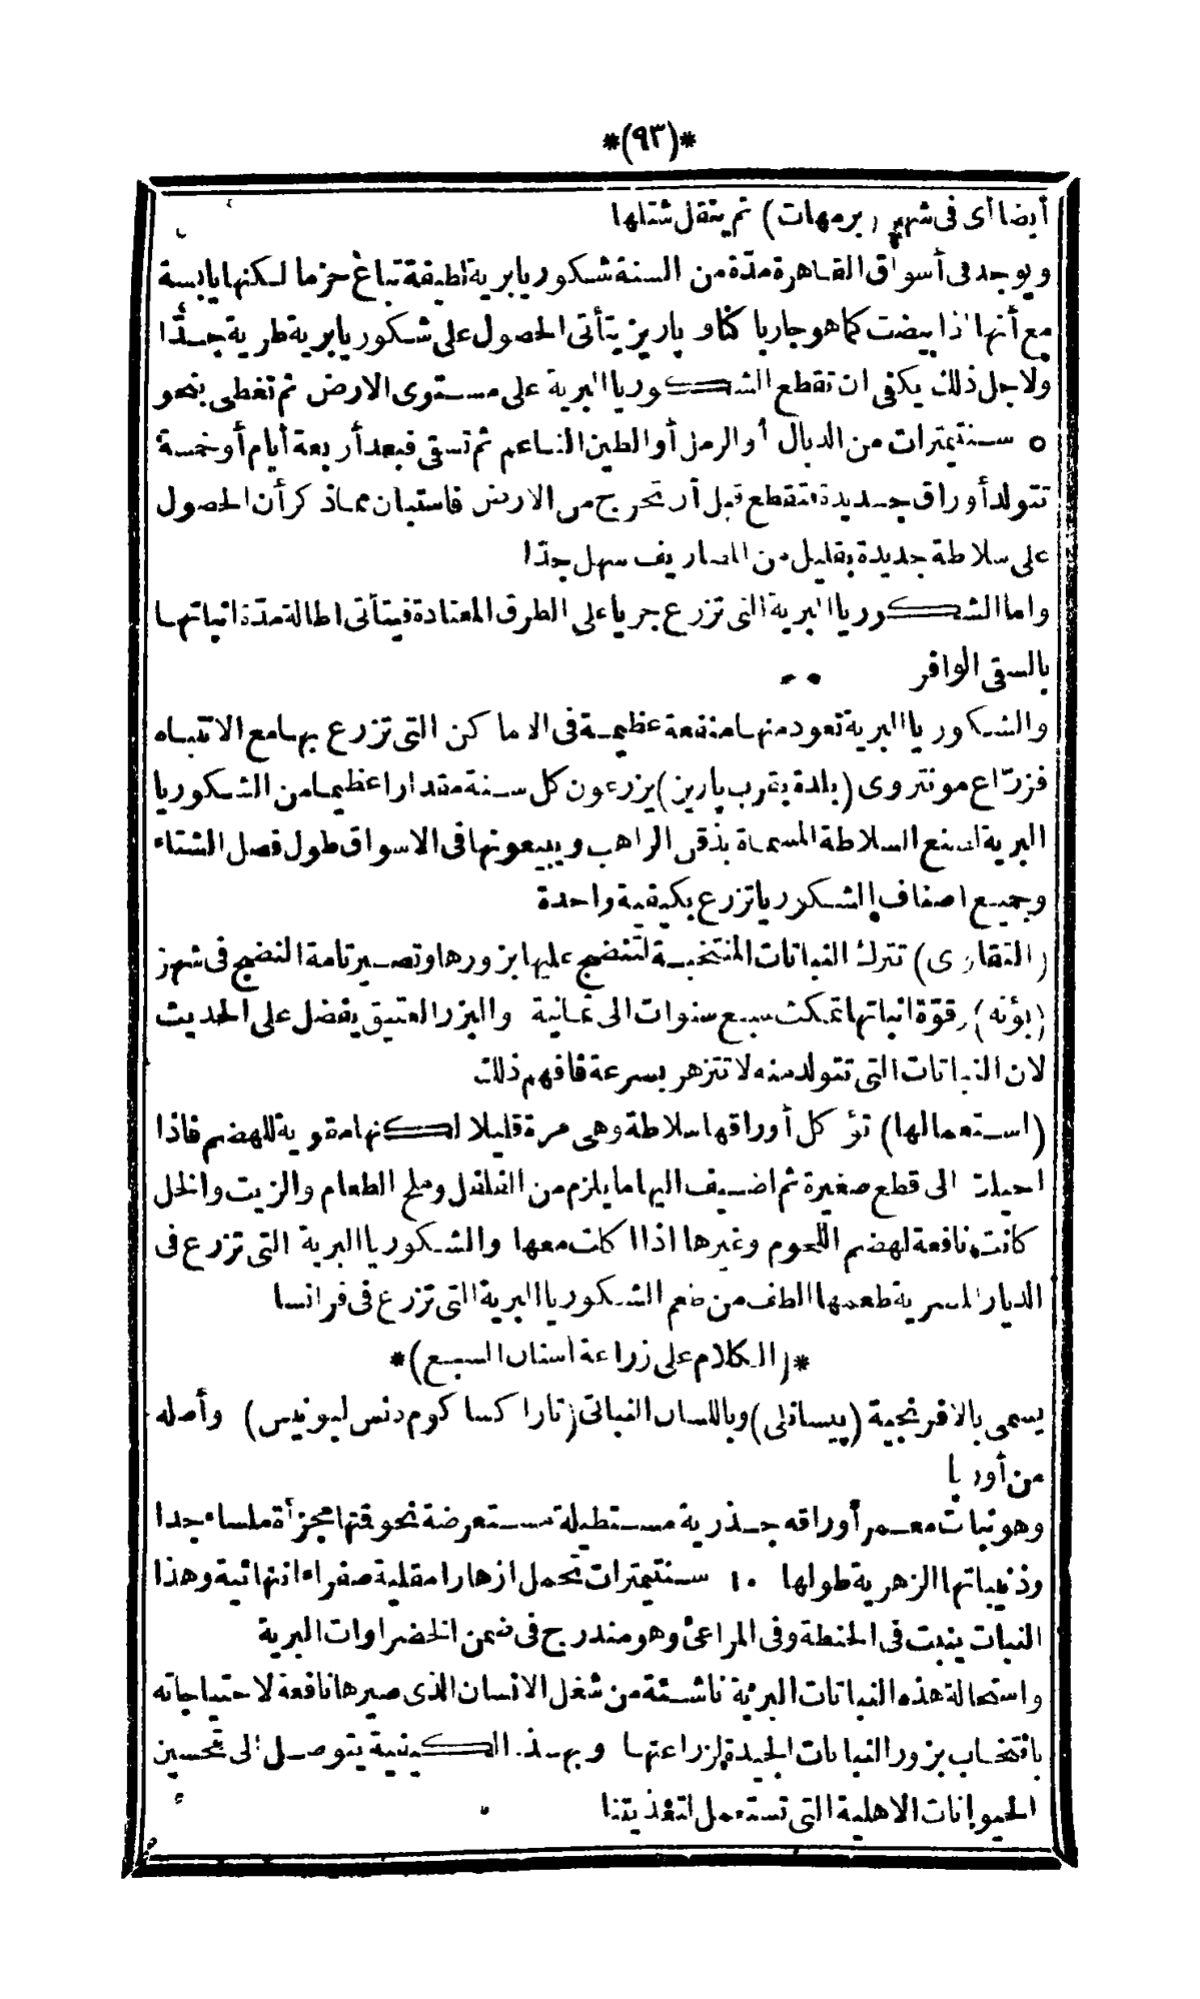 *(٩٣)*
أيضا أى فى شهر (برمهات) ثم ينقل شتلها
ويوجد فى أسواق القاهرة مدّة من السنة شكوريا برية لطيفة تباع حزما لكنها يابسة
مع أنها اذا بيضت كما هو جار باكناو پاريز يتأتى الحصول على شكوريا برية طرية جدّا
ولاجل ذلك يكفى ان تقطع الشكوريا البرية على مستوى الارض ثم تغطى بنحو
٥ سنتيمترات من الدبال أو الرمل أو الطين الناعم ثم تسقى فبعد أربعة أيام أو خمسة
تتولد أوراق جديدة فتقطع قبل أن تخرج من الارض فاستبان مماذ كرأن الحصول
على سلاطة جديدة بقليل من المصاريف سهل جدّا
واما الشكوريا البرية التى تزرع جريا على الطرق المعتادة فيتأتى اطالة مدّة انباتها
بالسقى الوافر
والشكوريا البرية تعود منها منفعة عظيمة فى الاماكن التى تزرع بها مع الانتباه
فزرّاع مونتروى (بلدة بقرب پاريز) يزرعون كل سنة مقدارا عظيما من الشكوريا
البرية لصنع السلاطة المسماة بذقن الراهب ويبيعونها فى الاسواق طول فصل الشتاء
وجميع اصناف الشكوريا تزرع بكيفية واحدة
(التقاوى) تترك النباتات المنتخبة لتنضج عليها بزورها وتصير تامة النضج فى شهر
(بؤنه) وقوّة انباتها تمكث سبع سنوات الى ثمانية والبزر العتيق يفضل على الحديث
لان النباتات التى تتولد منه لا تتزهر بسرعة فافهم ذلك
(استعمالها) تؤكل أوراقها سلاطة وهى مرة قليلا لكنها مقوية للهضم فاذا
احيلت الى قطع صغيرة ثم اضيف اليها ما يلزم من الفلفل وملح الطعام والزيت والخل
كانت نافعة لهضم اللحوم وغيرها اذا اكلت معها والشكوريا البرية التى تزرع فى
الديار المصرية طعمها الطف من طعم الشكوريا البرية التى تزرع فى فرانسا
*(الكلام على زراعة أسنان السبع)*
يسمى بالافرنجية (پيسانلى) وباللسان النباتى (تاراكسا كوم دنس ليونيس) وأصله
من أوربا
وهو نبات معمر أوراقه جذرية مستطيلة مستعرضة نحو قتها مجزأة ملساء جدا
وذنيباتها الزهرية طولها ١٠ سنتيمترات تحمل ازهارا مقلية صفراء انتهائية وهذا
النبات ينبت فى الحنطة وفى المراعى وهو مندرج فى ضمن الخضراوات البرية
واستحالة هذه النباتات البرية ناشئة من شغل الانسان الذى صيرها نافعة لاحتياجاته
بانتخاب بزور النباتات الجيدة لزراعتها وبهذه الكيفية يتوصل الى تحسين
الحيوانات الاهلية التى تستعمل لتغذيتنا